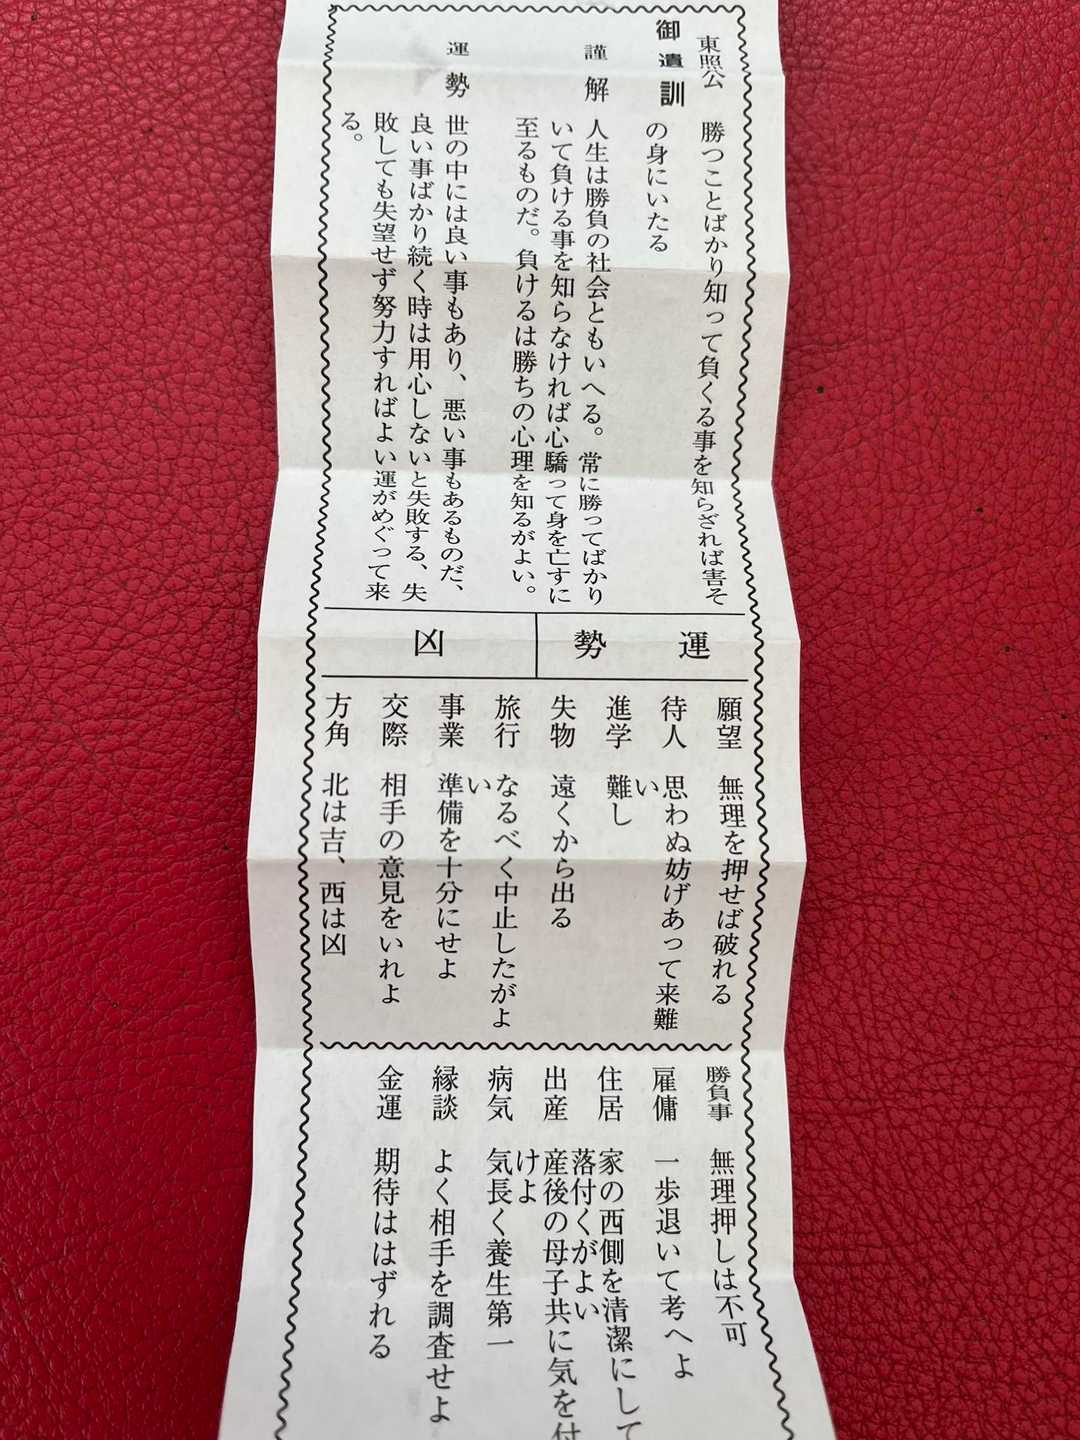 東照公
御遺訓
勝つことばかり知って負くる事を知らざれば害そ
の身にいたる
謹解
人生は勝負の社会ともいへる。常に勝ってばかり
いて負ける事を知らなければ心驕って身を亡すに
至るものだ。負けるは勝ちの心理を知るがよい。
運勢
世の中には良い事もあり、悪い事もあるものだ、
良い事ばかり続く時は用心しないと失敗する、失
敗しても失望せず努力すればよい運がめぐって来
る。
運勢
凶
願望 無理を押せば破れる
待人 思わぬ妨げあって来難
い
進学 難し
失物 遠くから出る
旅行 なるべく中止したがよ
い
事業 準備を十分にせよ
交際 相手の意見をいれよ
方角 北は吉、西は凶
勝負事 無理押しは不可
雇傭 一歩退いて考へよ
住居 家の西側を清潔にして
落付くがよい
出産 産後の母子共に気を付
けよ
病気 気長く養生第一
縁談 よく相手を調査せよ
金運 期待ははずれる